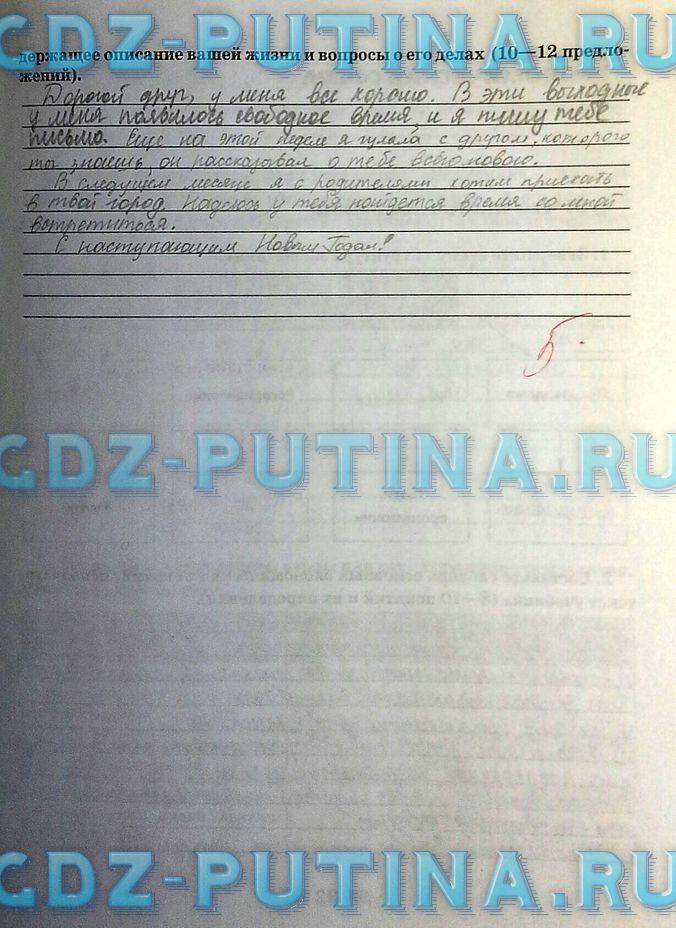 GDZ-PUTINA.RU
держащее описание вашей жизни и вопросы о его делах (10—12 предло-
жений).
Дорогой друг, у меня все хорошо. В эти выходные
у меня появилось свободное время, и я пишу тебе
письмо. Еще на этой неделе я гуляла с другом, которого
ты знаешь, он рассказывал о тебе всего нового.
В следущем месяце я с родителями хотим приехать
в твой город. Надеюсь у тебя найдется время со мной
встретиться.
С наступающим Новым Годом!
5.
GDZ-PUTINA.RU
GDZ-PUTINA.RU